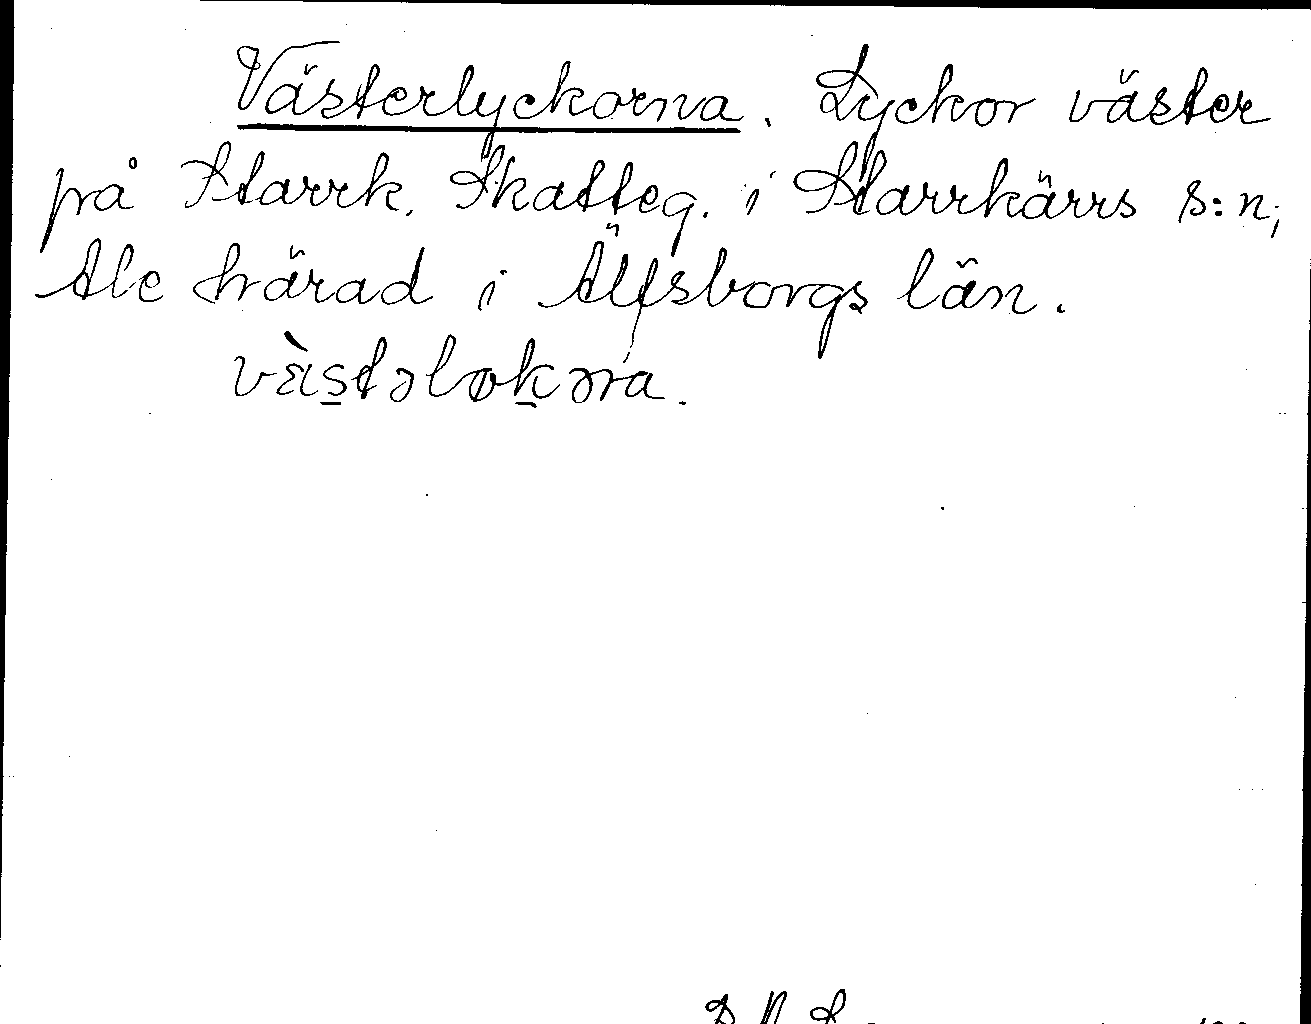 Västerlyckorna. Lyckor väster
på Starrk. Skatteg. i Starrkärrs s:n,
Ale härad i Älfsborgs län.
vàstəløkəra.